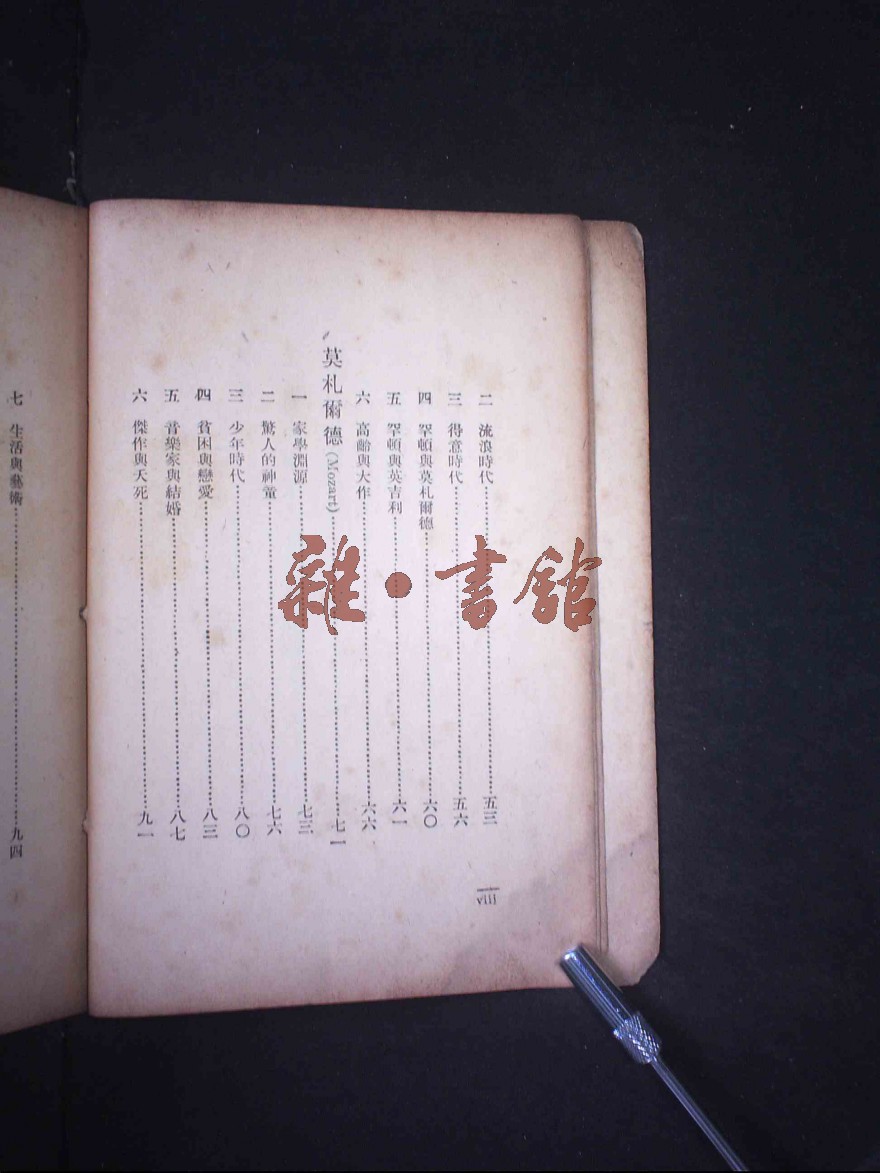 二　流浪時代……五三
三　得意時代……五六
四　罕頓與莫札爾德……六〇
五　罕頓與英吉利……六一
六　高齡與大作……六六
莫札爾德(Mozart)……七一
一　家學淵源……七三
二　驚人的神童……七六
三　少年時代……八〇
四　貧困與戀愛……八三
五　音樂家與結婚……八七
六　傑作與夭死……九一
viii
七　生活與藝術……九四
雜·書館